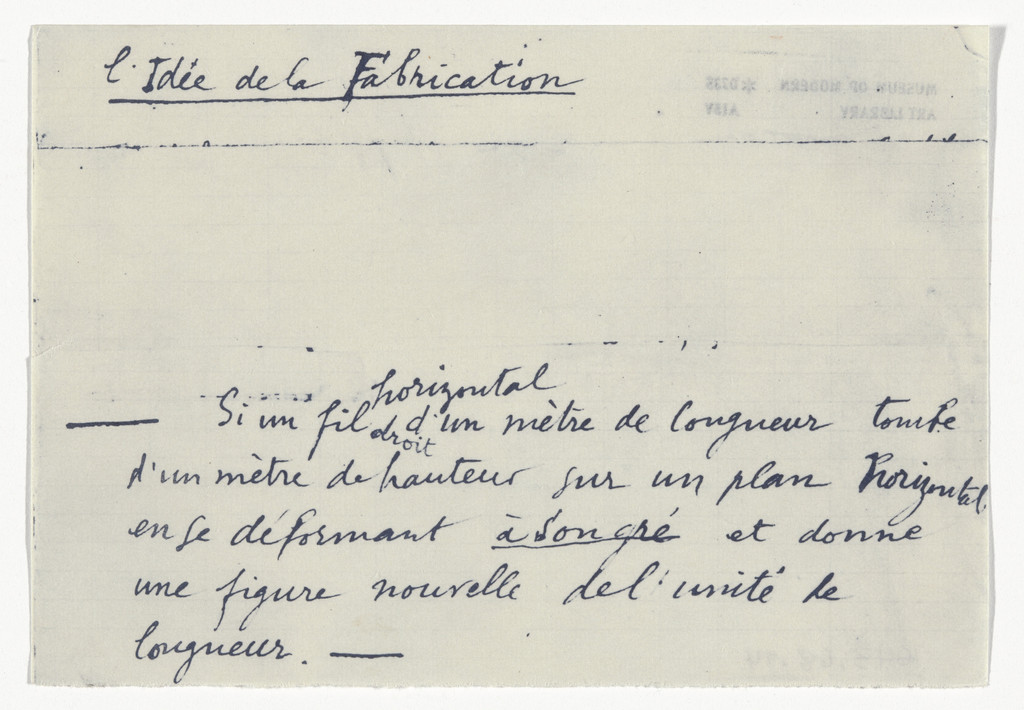 l'Idée de la Fabrication
MUSEUM OF MODERN
ART LIBRARY
horizontal
— Si un fil droit d'un mètre de longueur tombe
d'un mètre de hauteur sur un plan horizontal
en se déformant à son gré et donne
une figure nouvelle de l'unité de
longueur. —